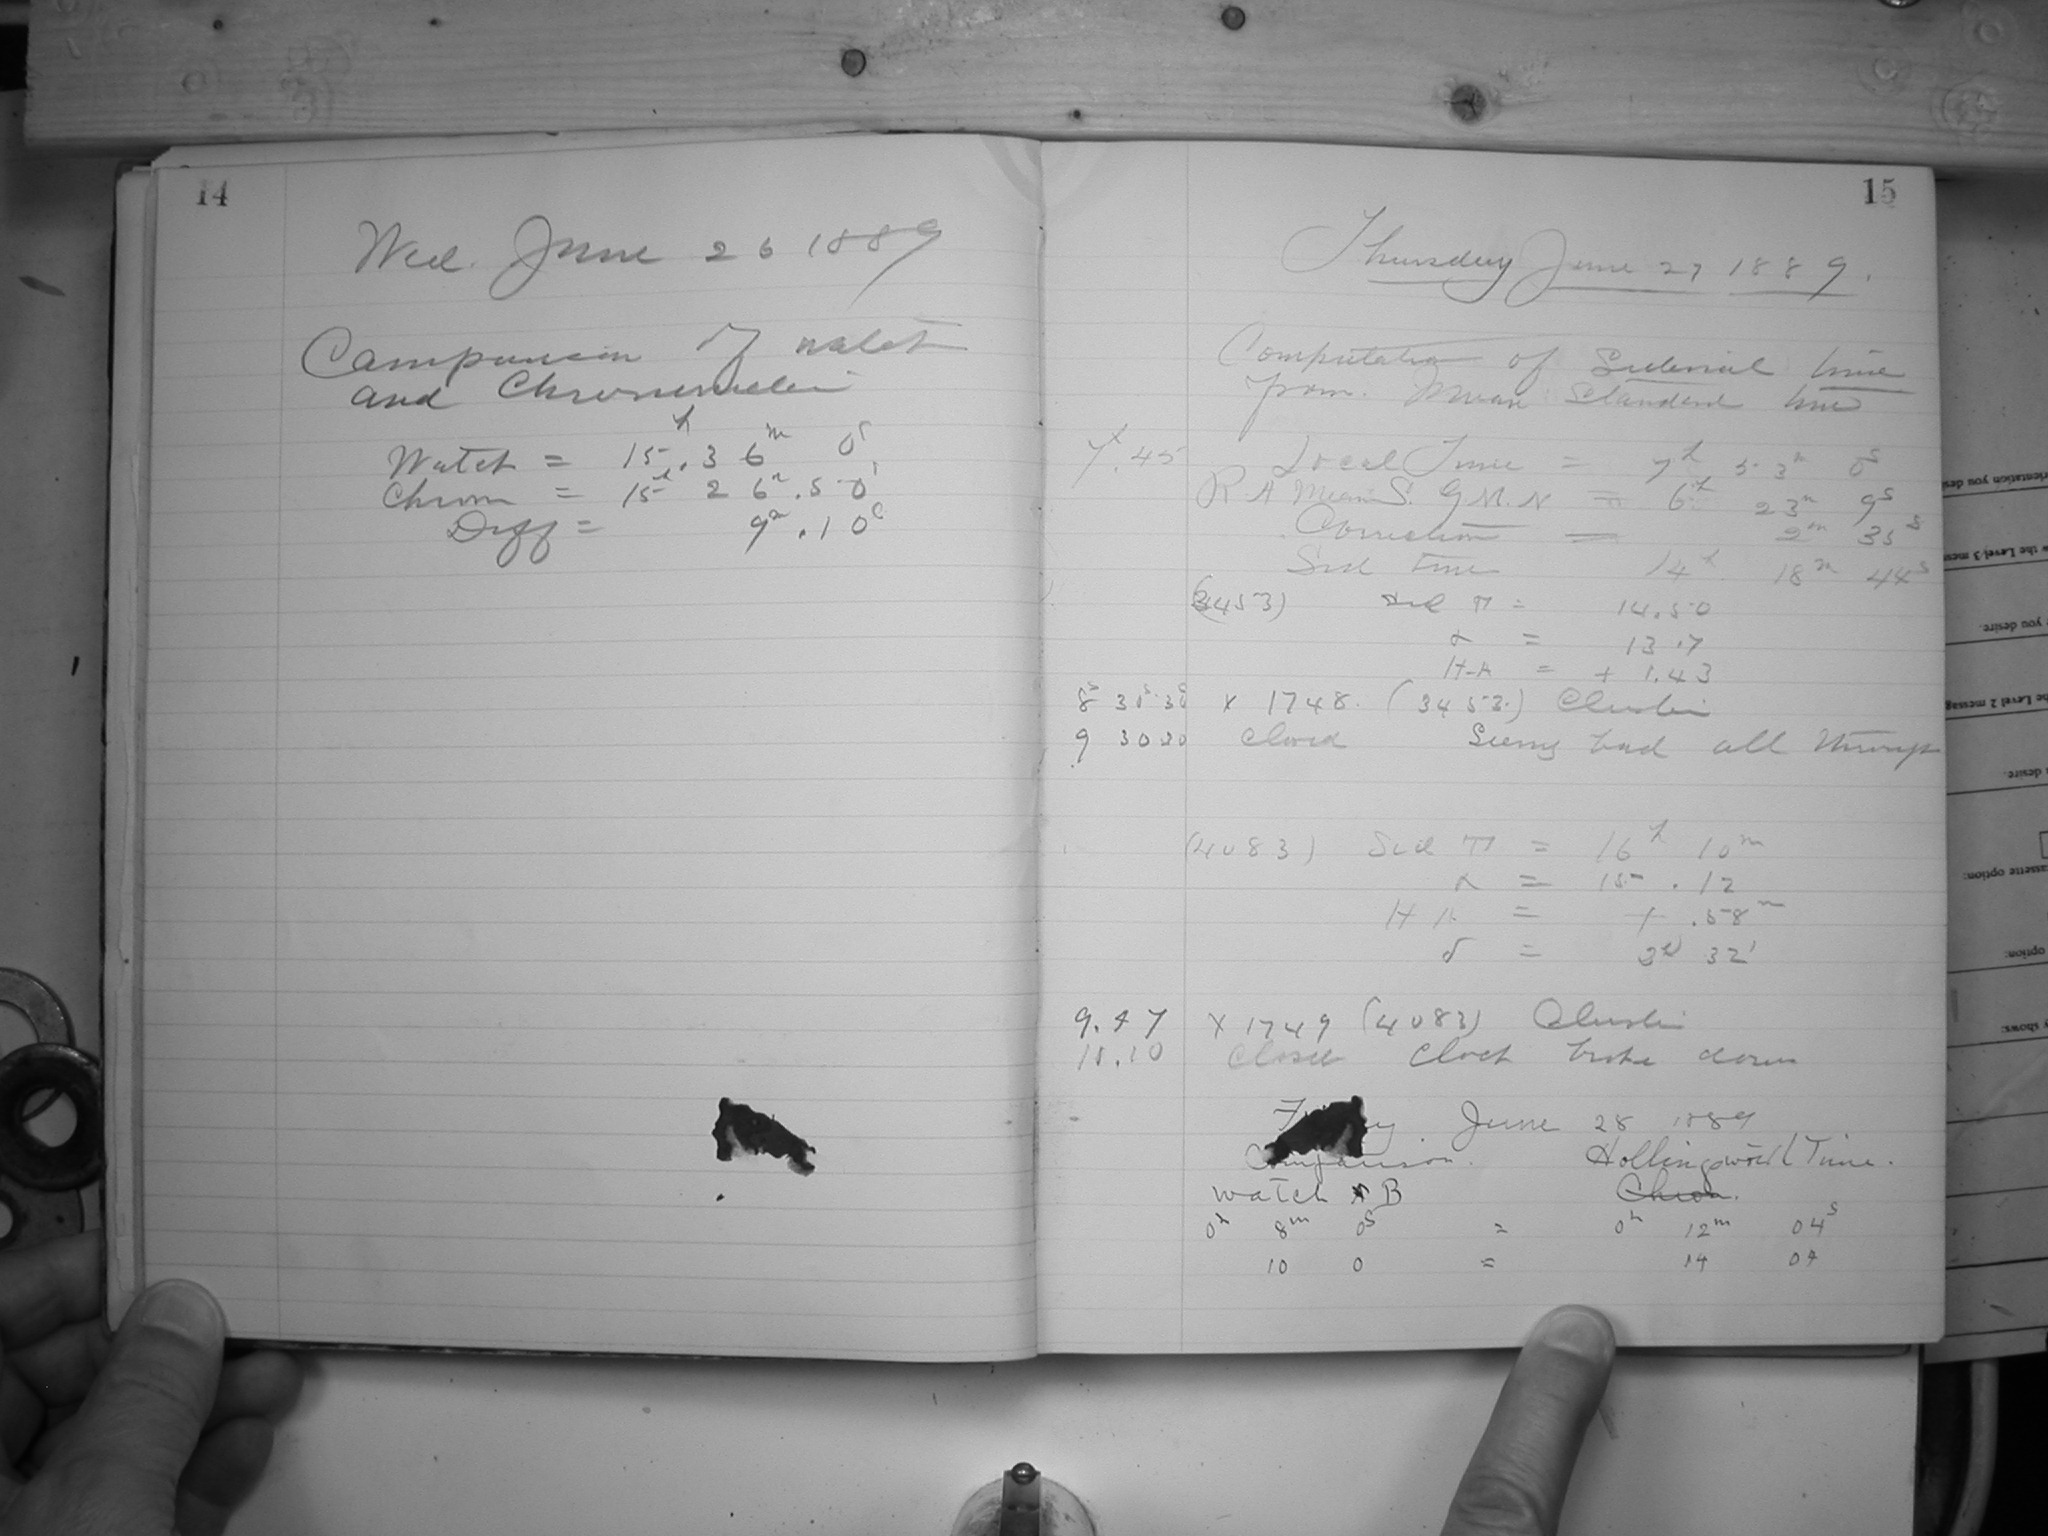 14
Wed. June 26 1889
Comparison of watch
and Chronometer
Watch = 15h.36m 0s
Chron = 15h 26m.50s
Diff = 9m.10s
15
Thursday June 27 1889.
Computation of Sidereal time
from Mean Standard time
7.45 Local Time = 7h 53m 0s
R A Mean S. G.M.N = 6h 23m 9s
Correction = 2m 35s
Sid time 14h 18m 44s
(3453) Sid T = 14.50
α = 13.7
H-A = + 1.43
8 30 30 x 1748. (3453.) Cluster
9 30 30 Closed Seeing bad all through
(4083) Sid T = 16h 10m
α = 15.12
H A = + .58m
δ = 32'
9.47 x 1749 (4083) Cluster
11.10 Closed Clock broke down
June 28 1889
Comparison. Hollingsworth Time.
watch B Chron.
0h 8m 0s = 0h 12m 04s
10 0 = 14 04